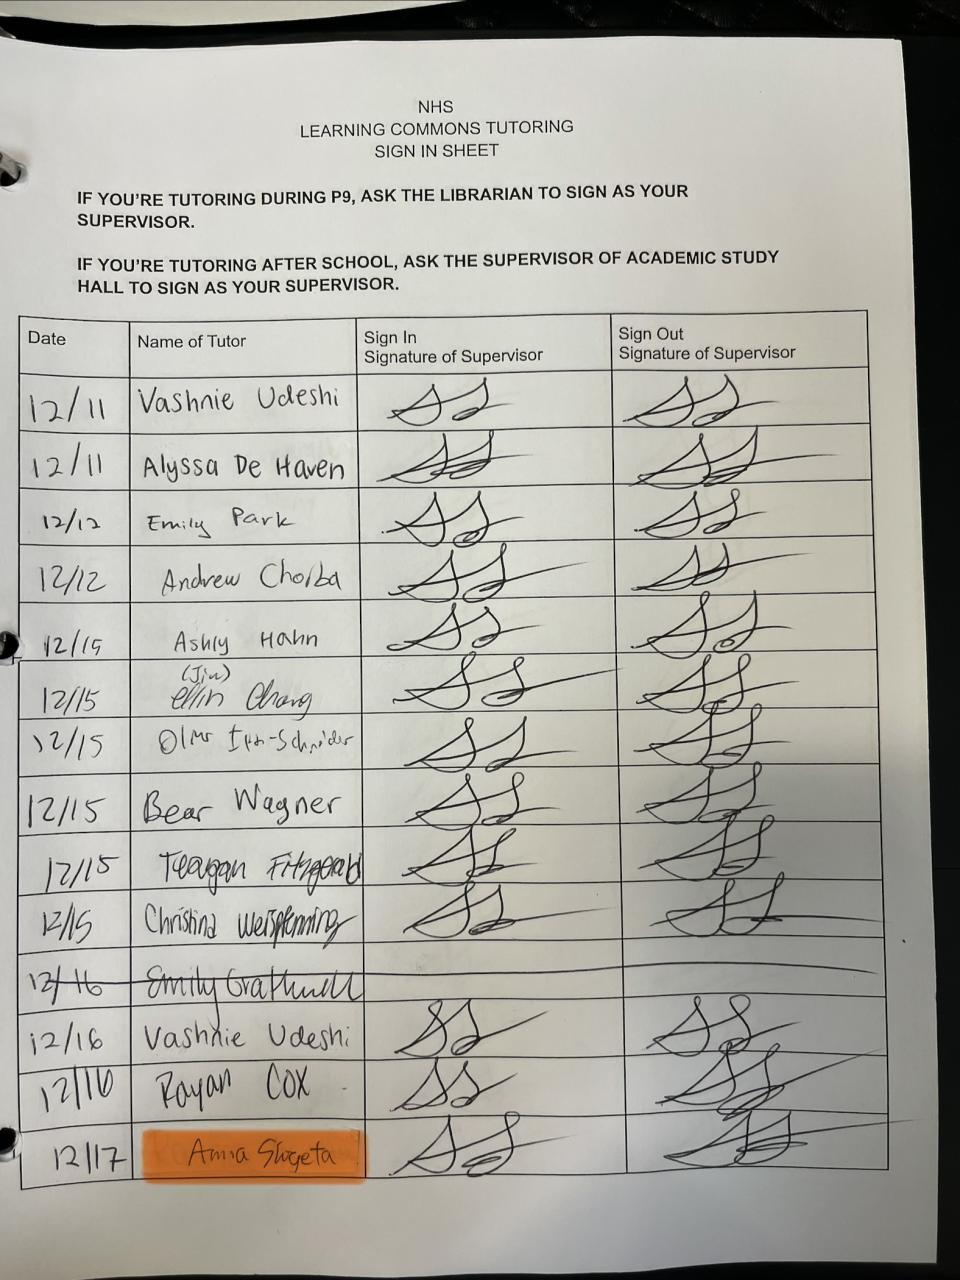 NHS
LEARNING COMMONS TUTORING
SIGN IN SHEET
IF YOU'RE TUTORING DURING P9, ASK THE LIBRARIAN TO SIGN AS YOUR
SUPERVISOR.
IF YOU'RE TUTORING AFTER SCHOOL, ASK THE SUPERVISOR OF ACADEMIC STUDY
HALL TO SIGN AS YOUR SUPERVISOR.
Date Name of Tutor Sign In Signature of Supervisor Sign Out Signature of Supervisor
12/11 Vashnie Udeshi
12/11 Alyssa De Haven
12/12 Emily Park
12/12 Andrew Chorba
12/15 Ashly Hahn
(Jin)
12/15 Chang
12/15
12/15 Bear Wagner
12/15 Teagan Fitzgerald
12/15 Christina
12/16 Emily
12/16 Vashnie Udeshi
12/16 Rayan Cox
12/17